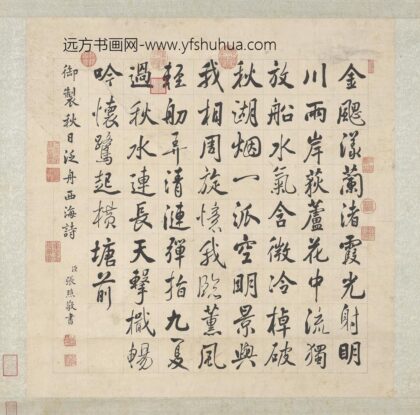 远方书画网-www.yfshuhua.com
金飔漾蘭渚霞光射明
川兩岸荻蘆花中流獨
放船水氣含微冷棹破
秋湖烟一派空明景與
我相周旋憶我臨薰風
輕舠弄清漣彈指九夏
過秋水連長天擊檝暢
吟懷鷺起橫塘前
御製秋日泛舟西海詩
臣張照敬書